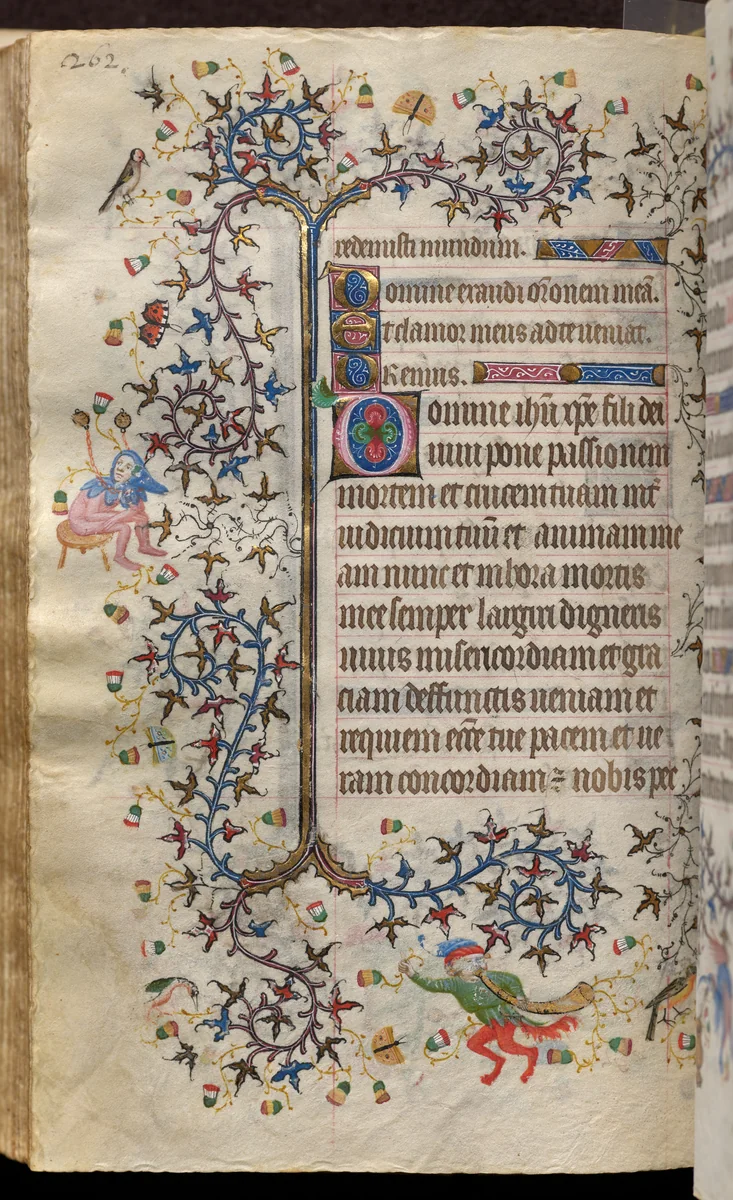 262.
redemisti mundum.
Domine exaudi or̃onem meã.
Et clamor meus ad te ueniat.
Oremus.
Domine ih̃u xp̃e fili dei
uiui pone passionem
mortem et crucem tuam int̃
iudicium tuũ et animam me
am nunc et in hora mortis
mee semper largiri digneris
uiuis misericordiam et gra
ciam deffunctis ueniam et
requiem ecc̃e tue pacem et ue
ram concordiam ⁊ nobis pec